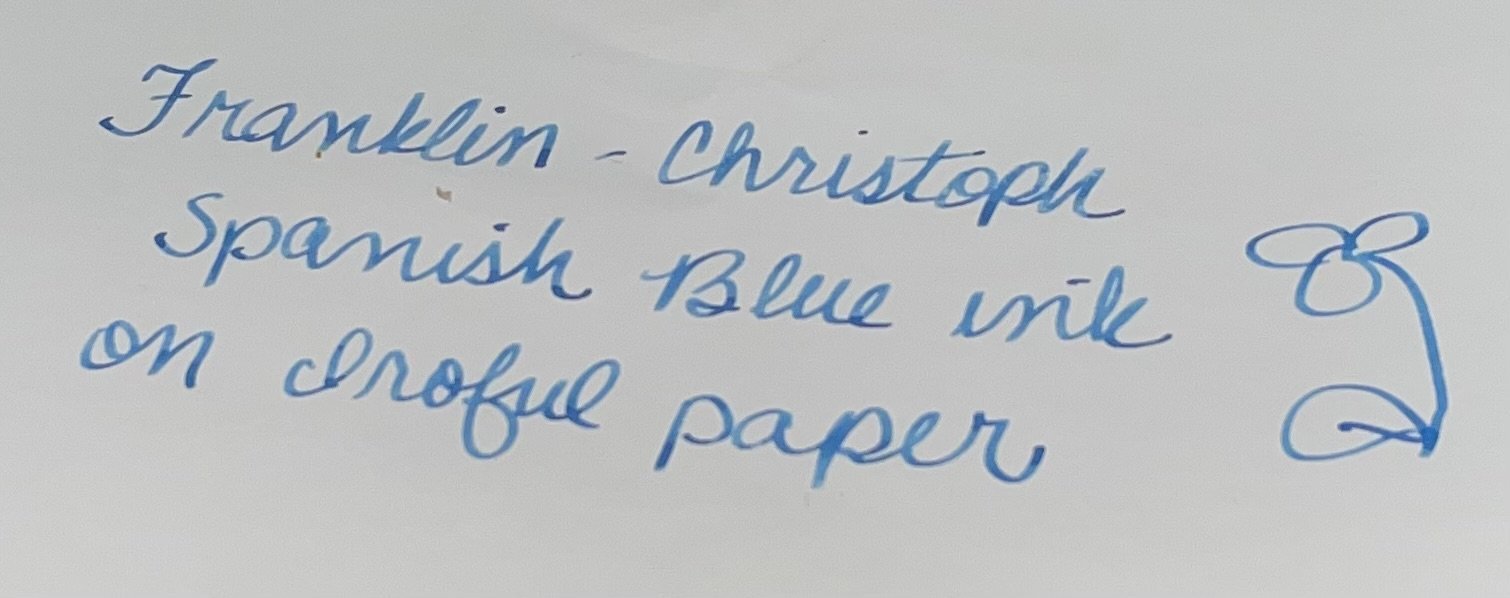 Franklin - Christoph
Spanish Blue ink
on Iroful paper